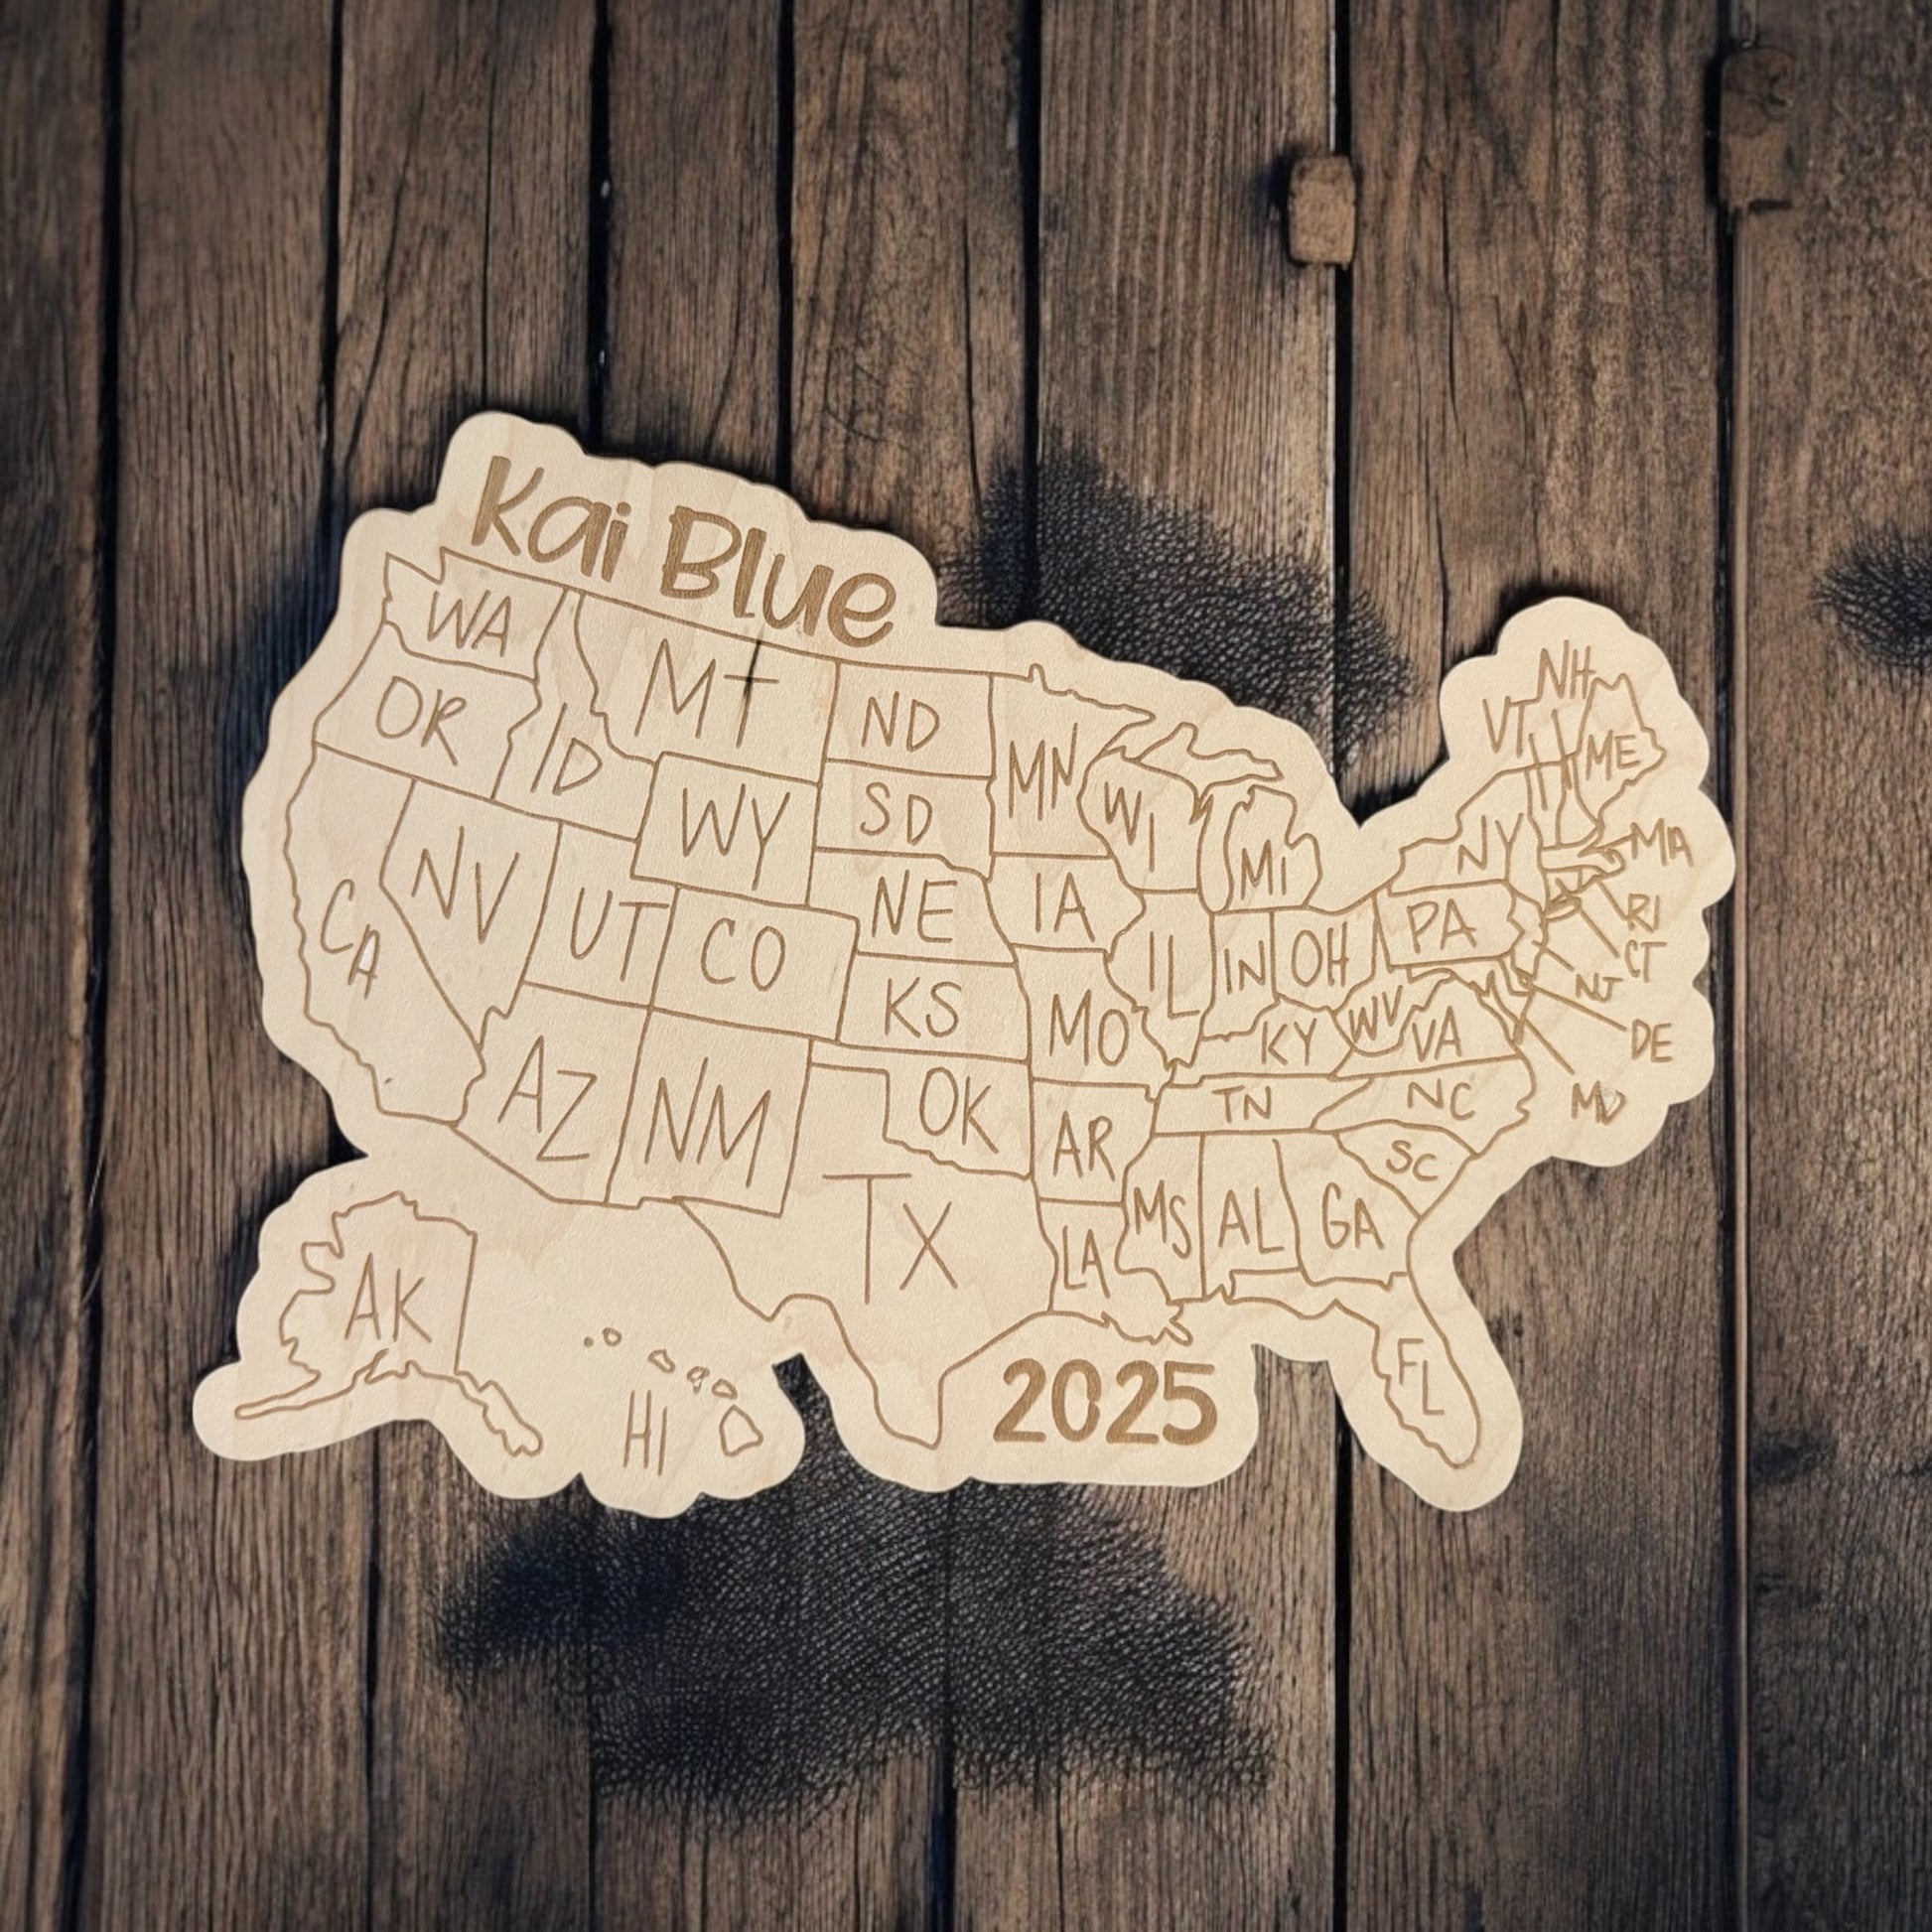 Kai Blue
WA
MT
ND
MN
OR
ID
WY
SD
WI
MI
VT
NH
ME
NY
MA
RI
CT
NJ
DE
MD
CA
NV
UT
CO
NE
IA
IL
IN
OH
PA
KS
MO
KY
WV
VA
AZ
NM
OK
AR
TN
NC
SC
TX
LA
MS
AL
GA
FL
AK
HI
2025